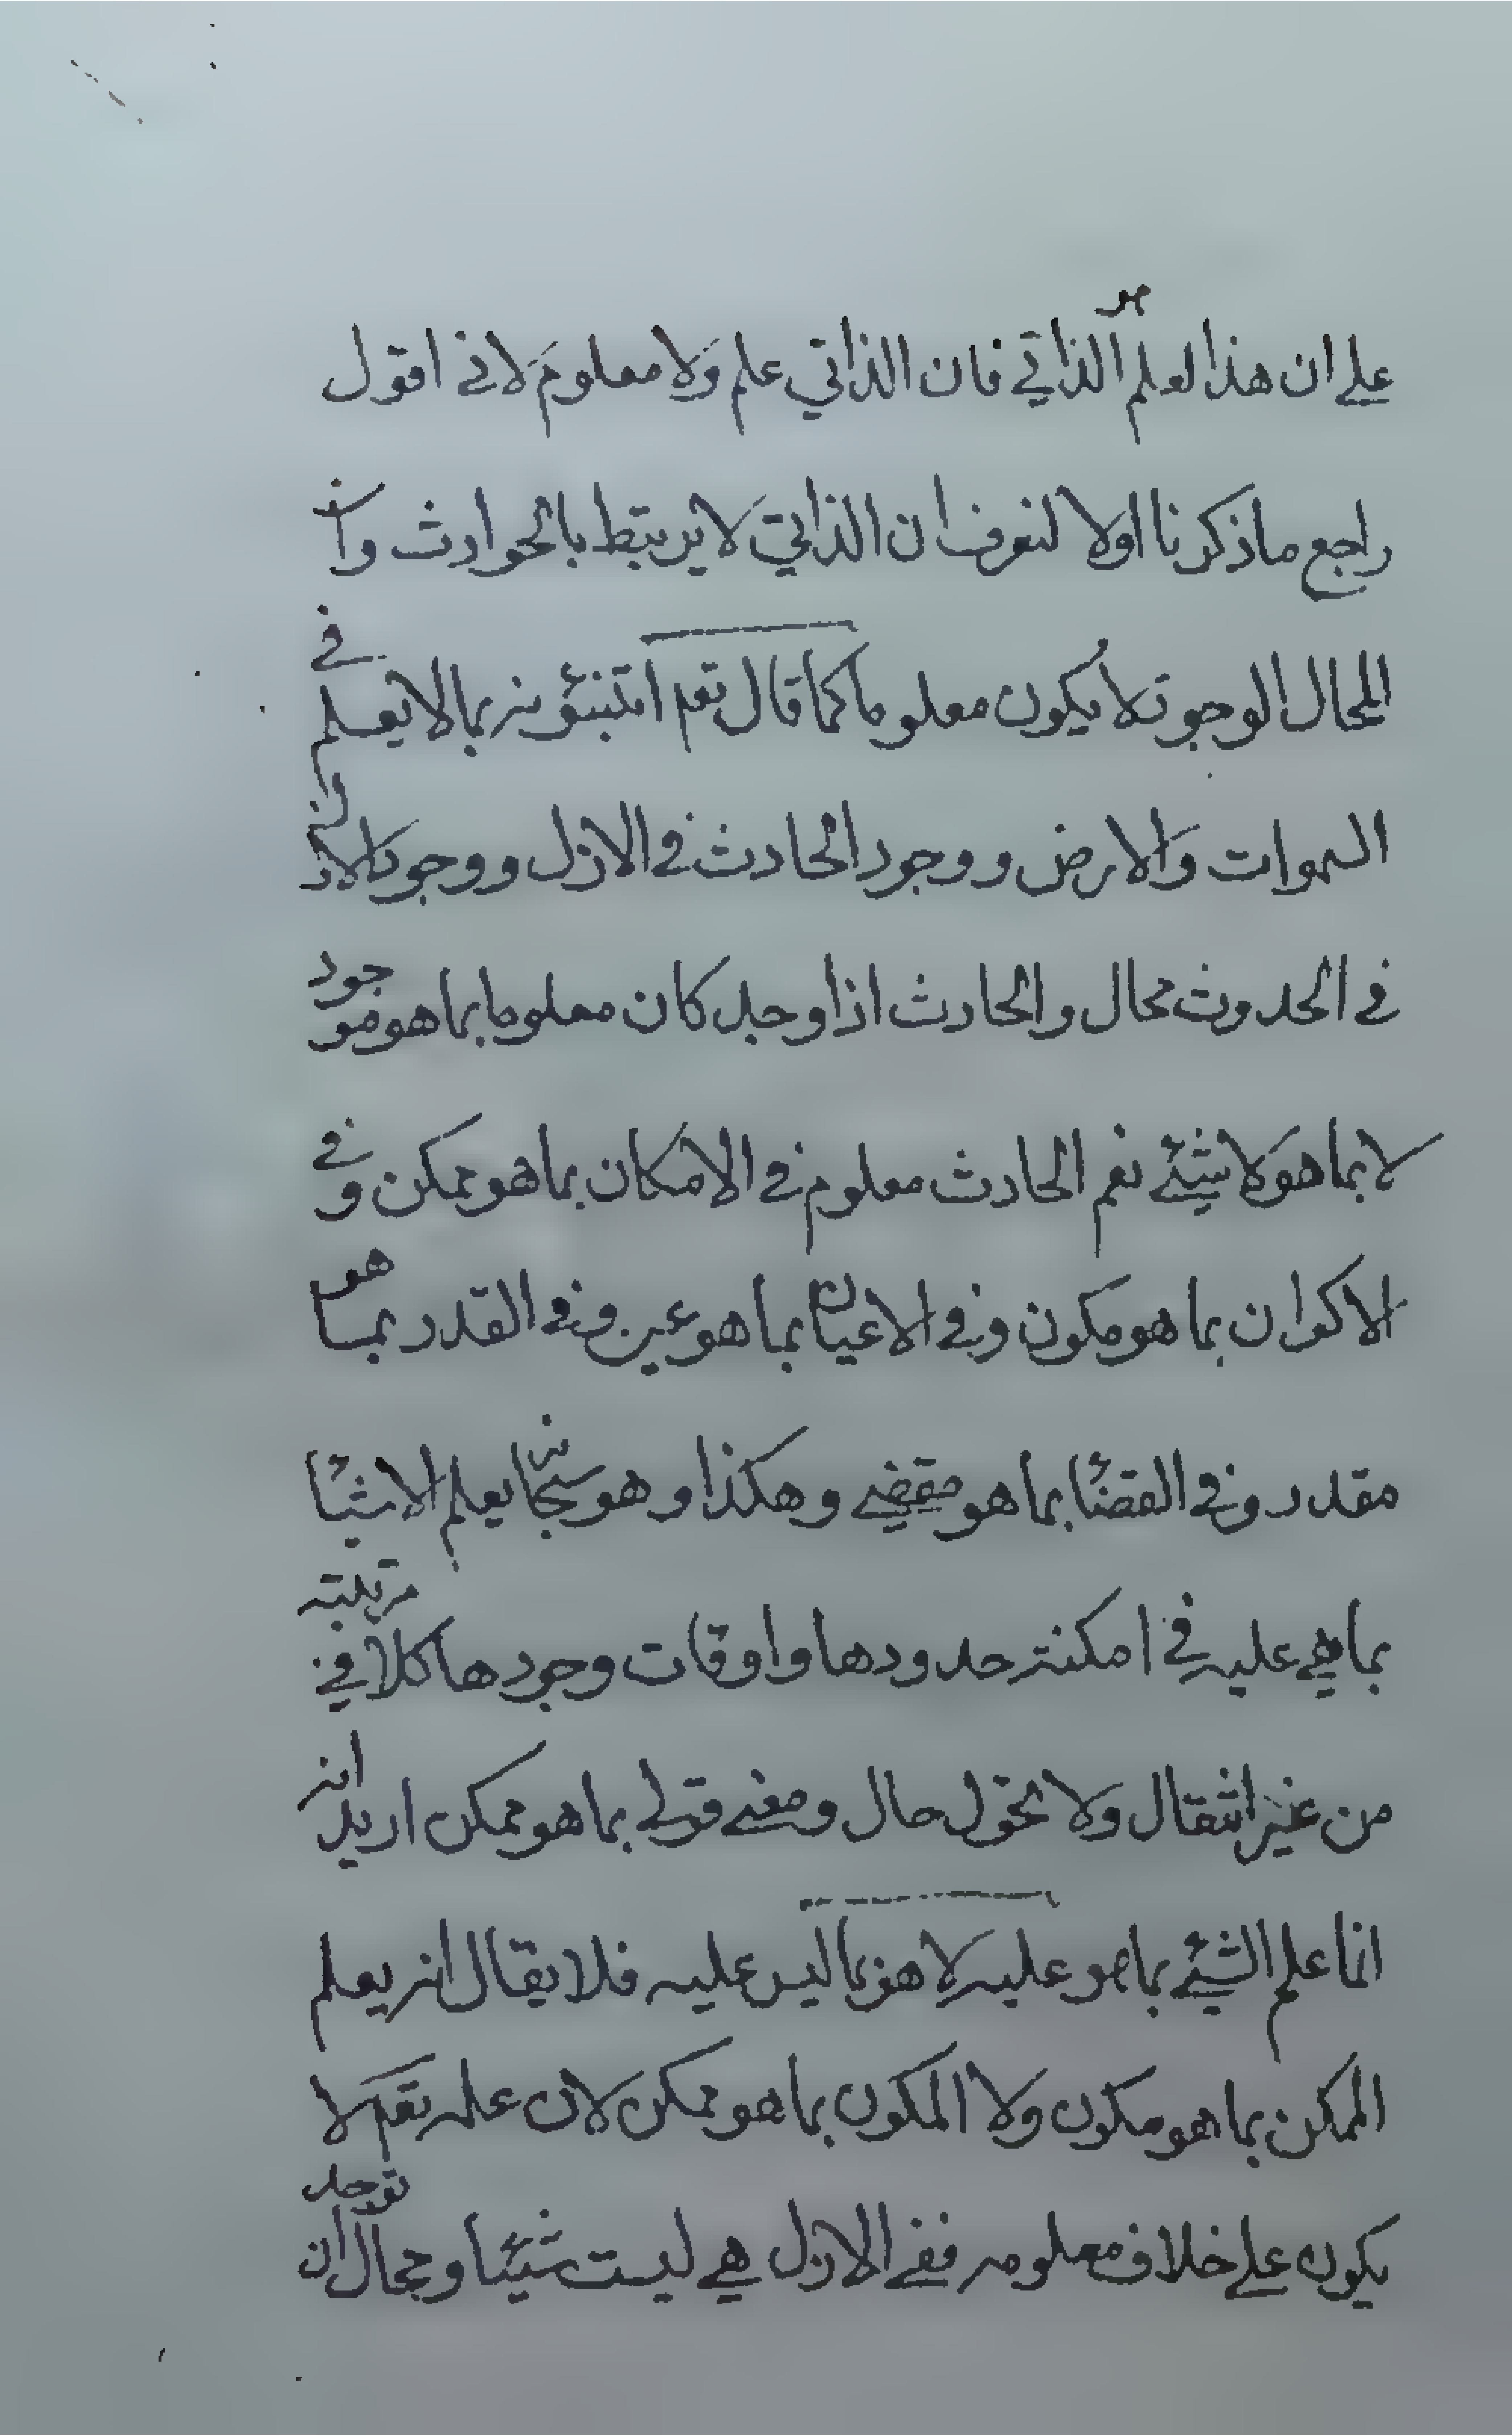 على ان هذا لعلم هو الذاتي فان الذاتي علم ولا معلوم لاني اقول
راجع ما ذكرنا اولا لتعرف ان الذاتي لا يرتبط بالحوادث وان
المحال الوجود لا يكون معلوما كما قال تعم اتنبئونه بما لا يعلم في
السموات والارض ووجود الحادث في الازل ووجود الازل
في الحدوث محال والحادث اذا وجد كان معلوما بما هو موجود
لا بما هو لا شيئ نعم الحادث معلوم في الامكان بما هو ممكن وفي
الاكوان بما هو مكون وفي الاعيان بما هو عين وفي القدر بما هو
مقدر وفي القضا بما هو مقضي وهكذا وهو سبحانه يعلم الاشيا
بما هي عليه في امكنة حدودها واوقات وجودها كلا في مرتبته
من غير انتقال ولا تحول حال ومعنى قولي بما هو ممكن اريد انه
انما علم الشيئ بما هو عليه لا هو بما ليس عليه فلا يقال انه يعلم
الممكن بما هو مكون ولا المكون بما هو ممكن لان علمه تعم لا
يكون على خلاف معلومه ففي الازل هي ليست شيئا ومحال ان توجد